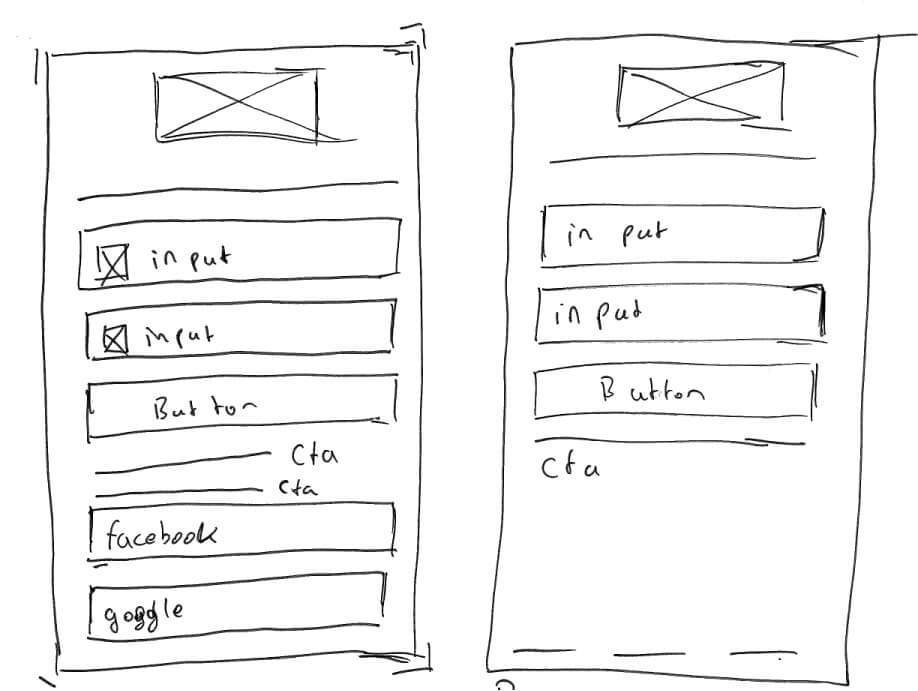 input
input
Button
Cta
cta
facebook
goggle
in put
in put
Button
cta